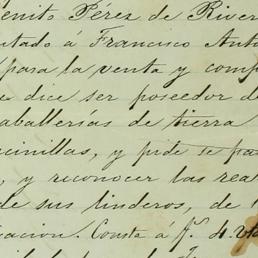 enito Pérez de River
utado á Francisco Anto
para la venta y comp
e dice ser poseedor d
aballerías de tierra
cinillas, y pide se pa
, y reconocer las rea
de sus linderos, de
cacion. Consta á f.